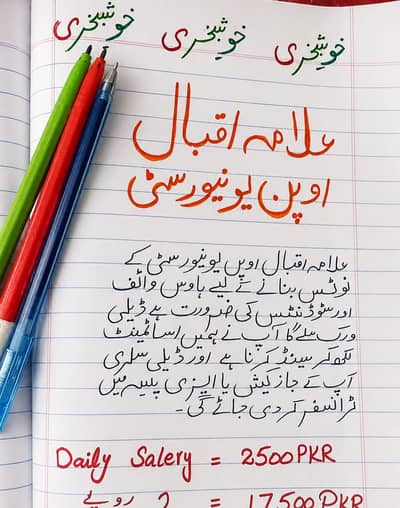 خوشخبری خوشخبری خوشخبری
علامہ اقبال
اوپن یونیورسٹی
علامہ اقبال اوپن یونیورسٹی کے
نوٹس بنانے کے لیے ہاوس وائف
اور سٹوڈنٹس کی ضرورت ہے ڈیلی
ورک ملے گا آپ نے ہمیں اسائمینٹ
لکھ کر سینڈ کرنا ہے اور ڈیلی سلری
آپ کے جاز کیش یا ایزی پیسہ میں
ٹرانسفر کر دی جائے گی۔
Daily Salery = 2500 PKR
روپے = 17,500 PKR